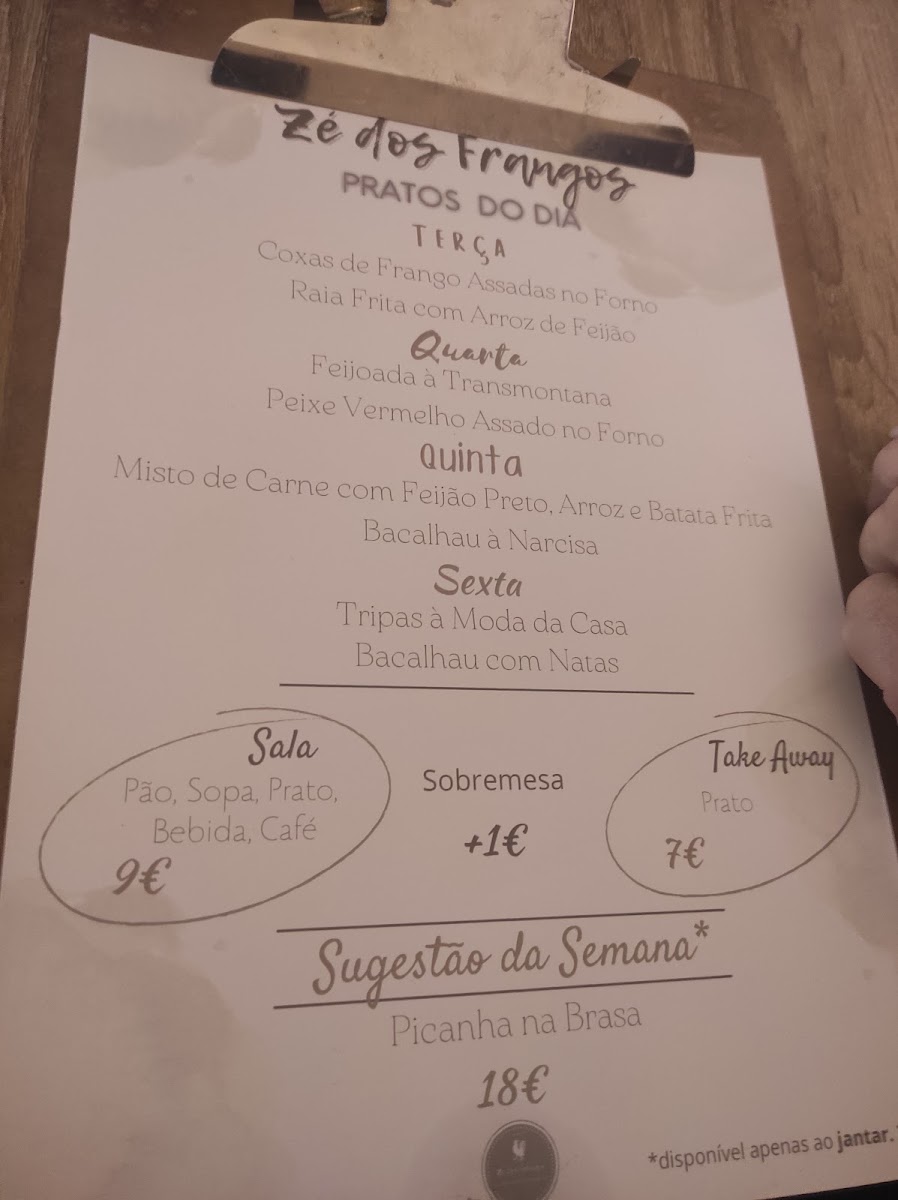 Zé dos Frangos
PRATOS DO DIA
TERÇA
Coxas de Frango Assadas no Forno
Raia Frita com Arroz de Feijão
Quarta
Feijoada à Transmontana
Peixe Vermelho Assado no Forno
Quinta
Misto de Carne com Feijão Preto, Arroz e Batata Frita
Bacalhau à Narcisa
Sexta
Tripas à Moda da Casa
Bacalhau com Natas
Sala
Pão, Sopa, Prato,
Bebida, Café
9€
Sobremesa
+1€
Take Away
Prato
7€
Sugestão da Semana*
Picanha na Brasa
18€
*disponível apenas ao jantar.